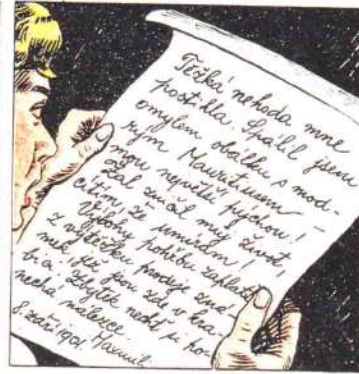 Těžká nehoda mne
postihla. Spálil jsem
omylem obálku s mod-
rým Mauritiusem –
mou největší pýchou!
Žal zničil můj život,
cítím, že umírám!
Výlohy pohřbu zaplaťte
z výtěžku prodeje zná-
mek, jež jsou zde v kra-
bici. Zbytek nechť si po-
nechá nálezce.
8. září 1901.